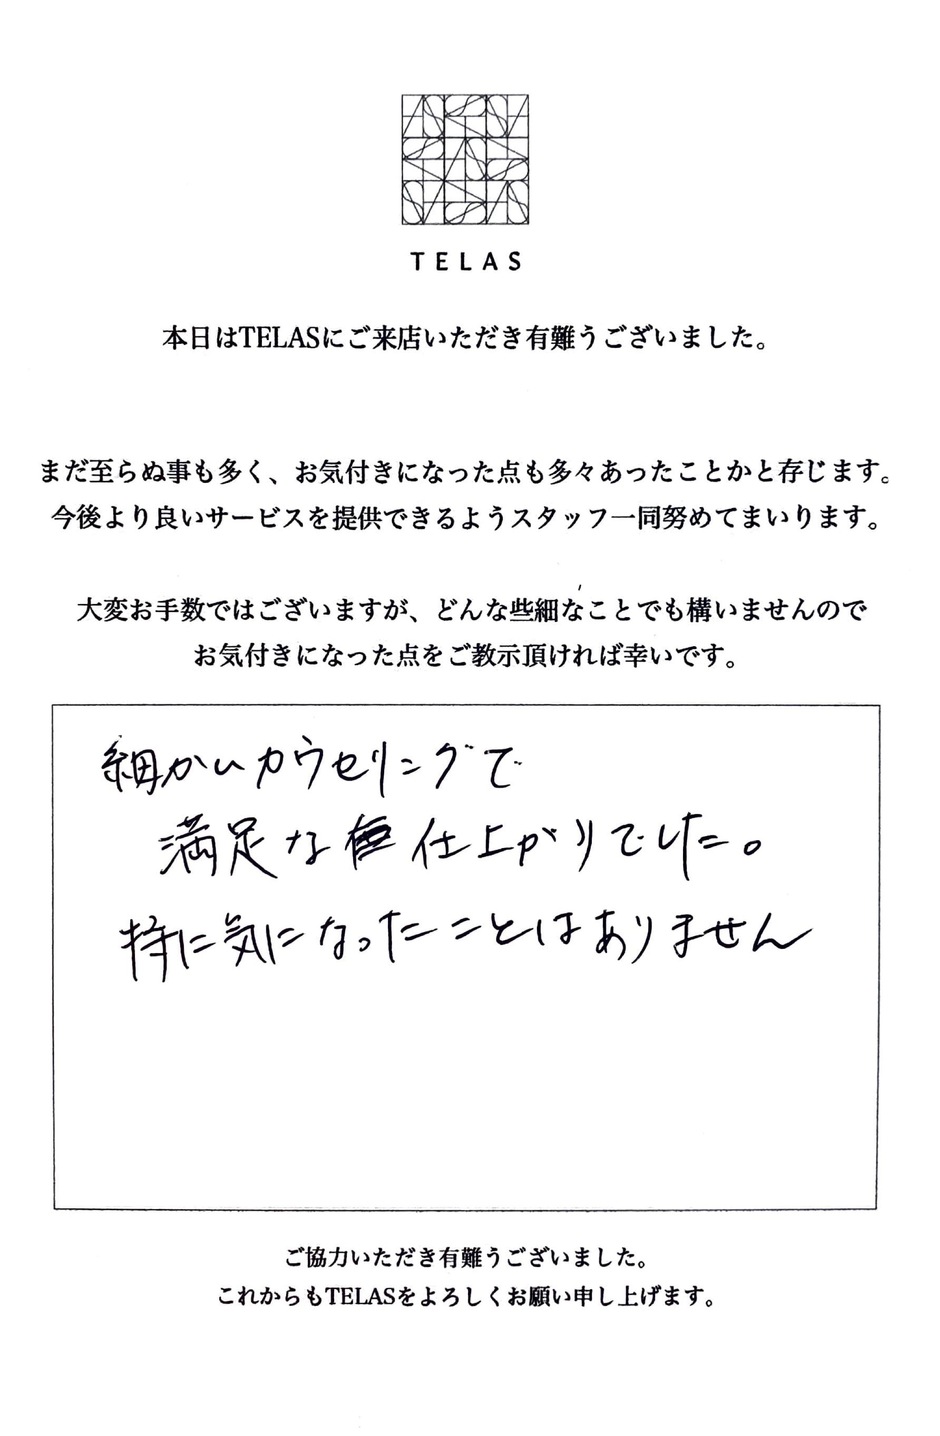 TELAS
本日はTELASにご来店いただき有難うございました。
まだ至らぬ事も多く、お気付きになった点も多々あったことかと存じます。
今後より良いサービスを提供できるようスタッフ一同努めてまいります。
大変お手数ではございますが、どんな些細なことでも構いませんので
お気付きになった点をご教示頂ければ幸いです。
細かいカウセリングで
満足な仕上がりでした。
特に気になったことはありません
ご協力いただき有難うございました。
これからもTELASをよろしくお願い申し上げます。